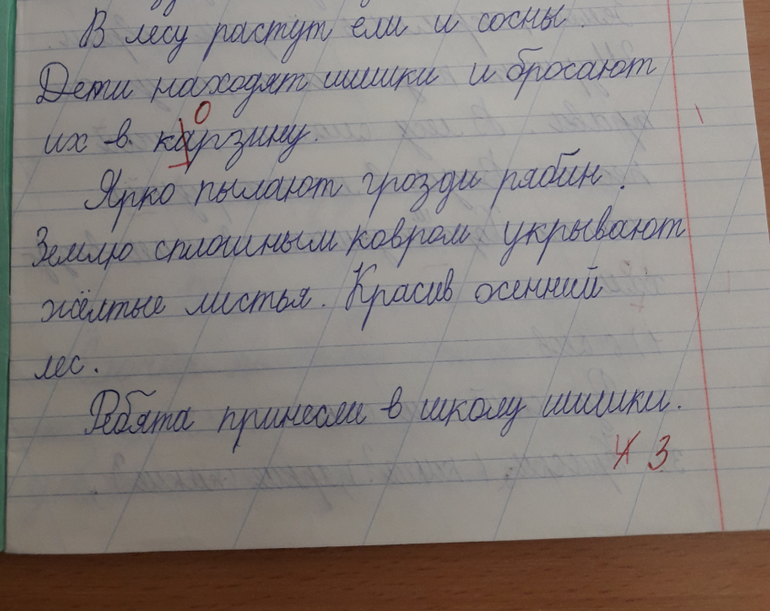 В лесу растут ели и сосны.
Дети находят шишки и бросают
о
их в карзину.
Ярко пылают грозди рябин.
Землю сплошным ковром укрывают
жёлтые листья. Красив осенний
лес.
Ребята принесли в школу шишки.
4 3